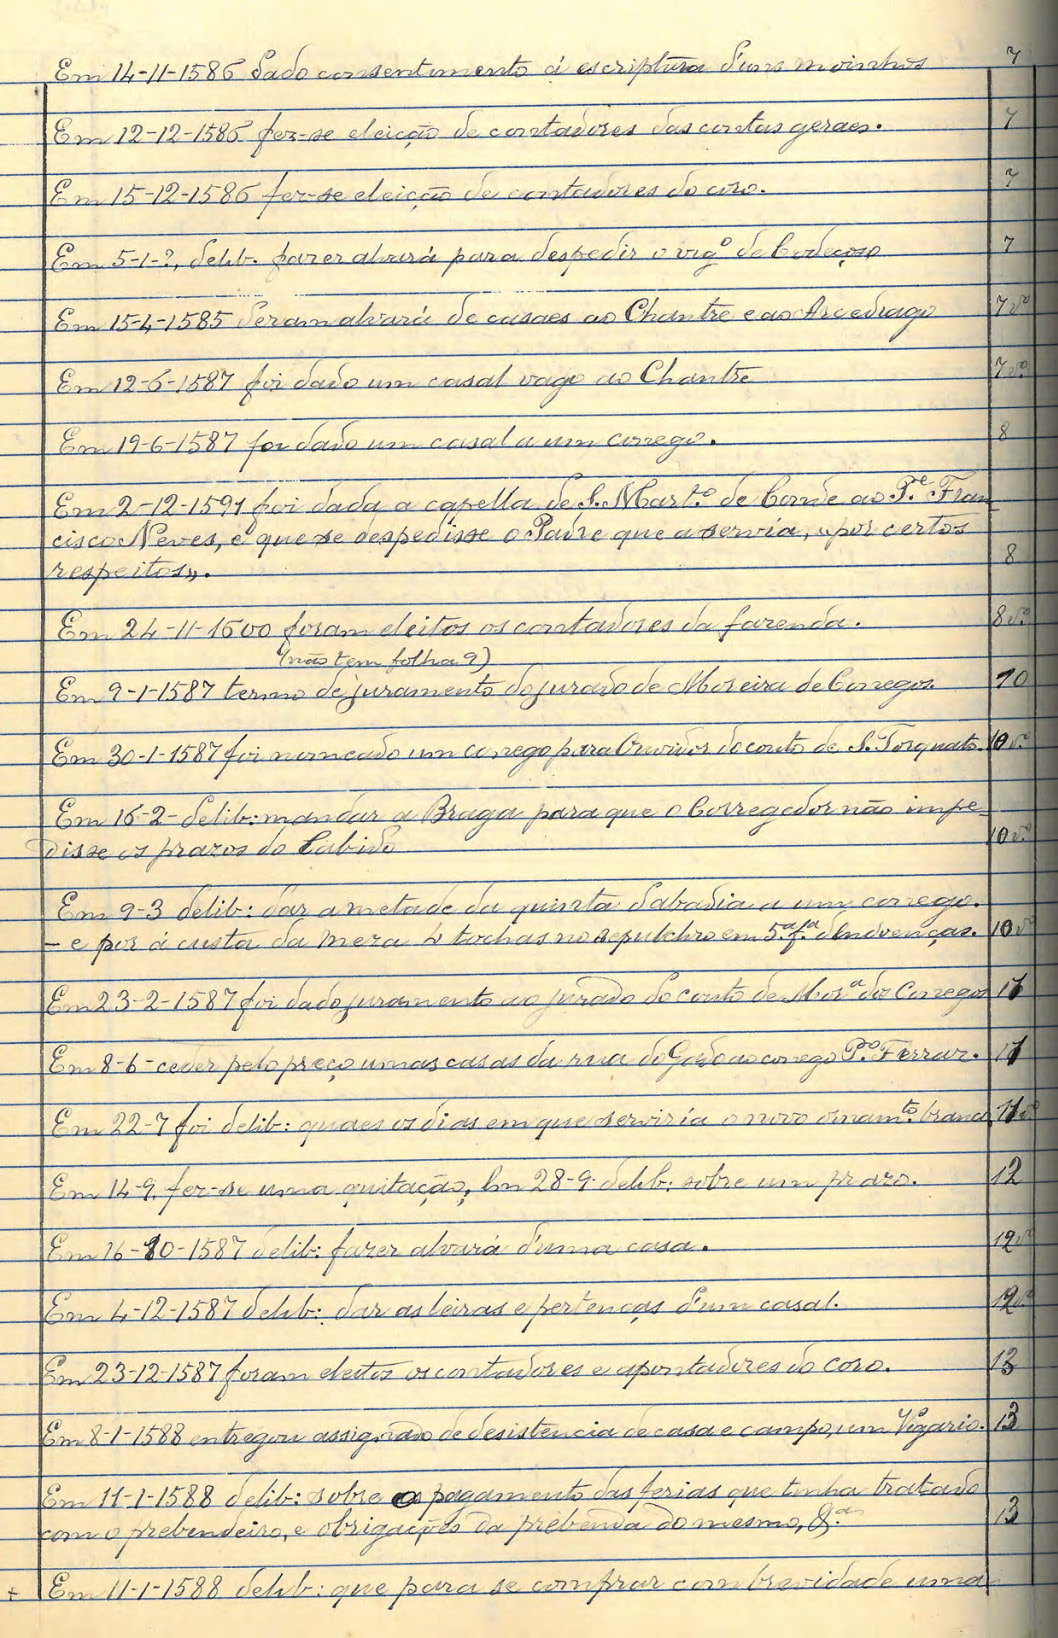 Em 14-11-1586 dado consentimento á escriptura d'uns moinhos 7
Em 12-12-1586 fez-se eleição de contadores das contas geraes. 7
Em 15-12-1586 fez-se eleição de contadores do coro. 7
Em 5-1-?, delib. fazer alvará para despedir o vig.º de Codeçoso 7
Em 15-4-1585 deram alvará de casaes ao Chantre e ao Arcediago 7 v.º
Em 12-6-1587 foi dado um casal vago ao Chantre 7 v.º
Em 19-6-1587 foi dado um casal a um conego. 8
Em 2-12-1591 foi dada a capella de S. Mart.º de Conde ao P.e Fran-
cisco Neves, e que se despedisse o Padre que a servia, «por certos
respeitos». 8
Em 24-11-1600 foram eleitos os contadores da fazenda. 8 v.º
(não tem folha 9)
Em 9-1-1587 termo de juramento do jurado de Moreira de Conegos. 10
Em 30-1-1587 foi nomeado um conego para Ouvidor do couto de S. Torquato. 10 v.º
Em 16-2- delib: mandar a Braga para que o Corregedor não impe-
disse os prazos do Cabido 10 v.º
Em 9-3 delib: dar a metade da quinta d'abadia a um conego.
- e por á custa da Meza 4 tochas no sepulchro em 5.ª f.ª d'Endoenças. 10 v.º
Em 23-2-1587 foi dado juramento ao jurado do couto de Mor.ª dos Conegos 11
Em 8-6- ceder pelo preço umas casas da rua do Gado ao conego P.º Ferraz. 11
Em 22-7 foi delib: quaes os dias em que serviria o novo ornam.to branco 11 v.º
Em 14-9 fez-se uma quitação, Em 28-9- delib: sobre um prazo. 12
Em 16-10-1587 delib: fazer alvará d'uma casa. 12 v.º
Em 4-12-1587 delib: dar as leiras e pertenças d'um casal. 12 v.º
Em 23-12-1587 foram eleitos os contadores e apontadores do coro. 13
Em 8-1-1588 entregou assignado de desistencia de casa e campo, um Vigario. 13
Em 11-1-1588 delib: sobre o pagamento das ferias que tinha tratado
com o prebendeiro, e obrigações da prebenda do mesmo, &.ª 13
+ Em 11-1-1588 delib: que para se comprar com brevidade uma